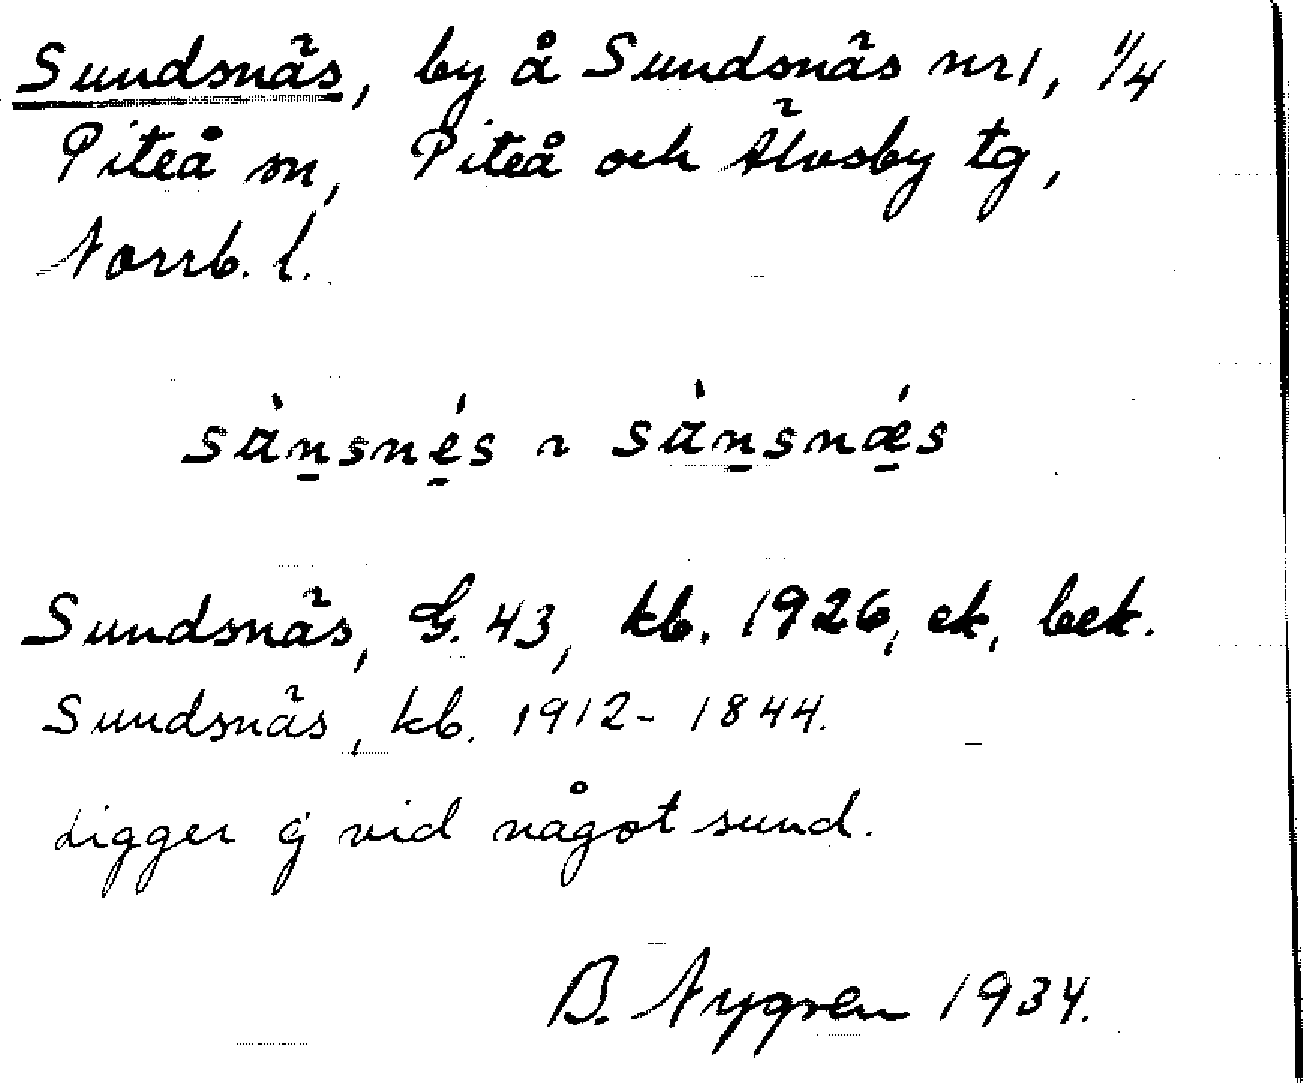 Sundsnäs, by å Sundsnäs nr 1, 1/4
Piteå sn, Piteå och Älvsby tg,
Norrb. l.
sànsnés ~ sànsnǽs
Sundsnäs, G. 43, kb. 1926, ek. bek.
Sundsnäs, kb. 1912-1844.
Ligger ej vid något sund.
B. Nygren 1934.